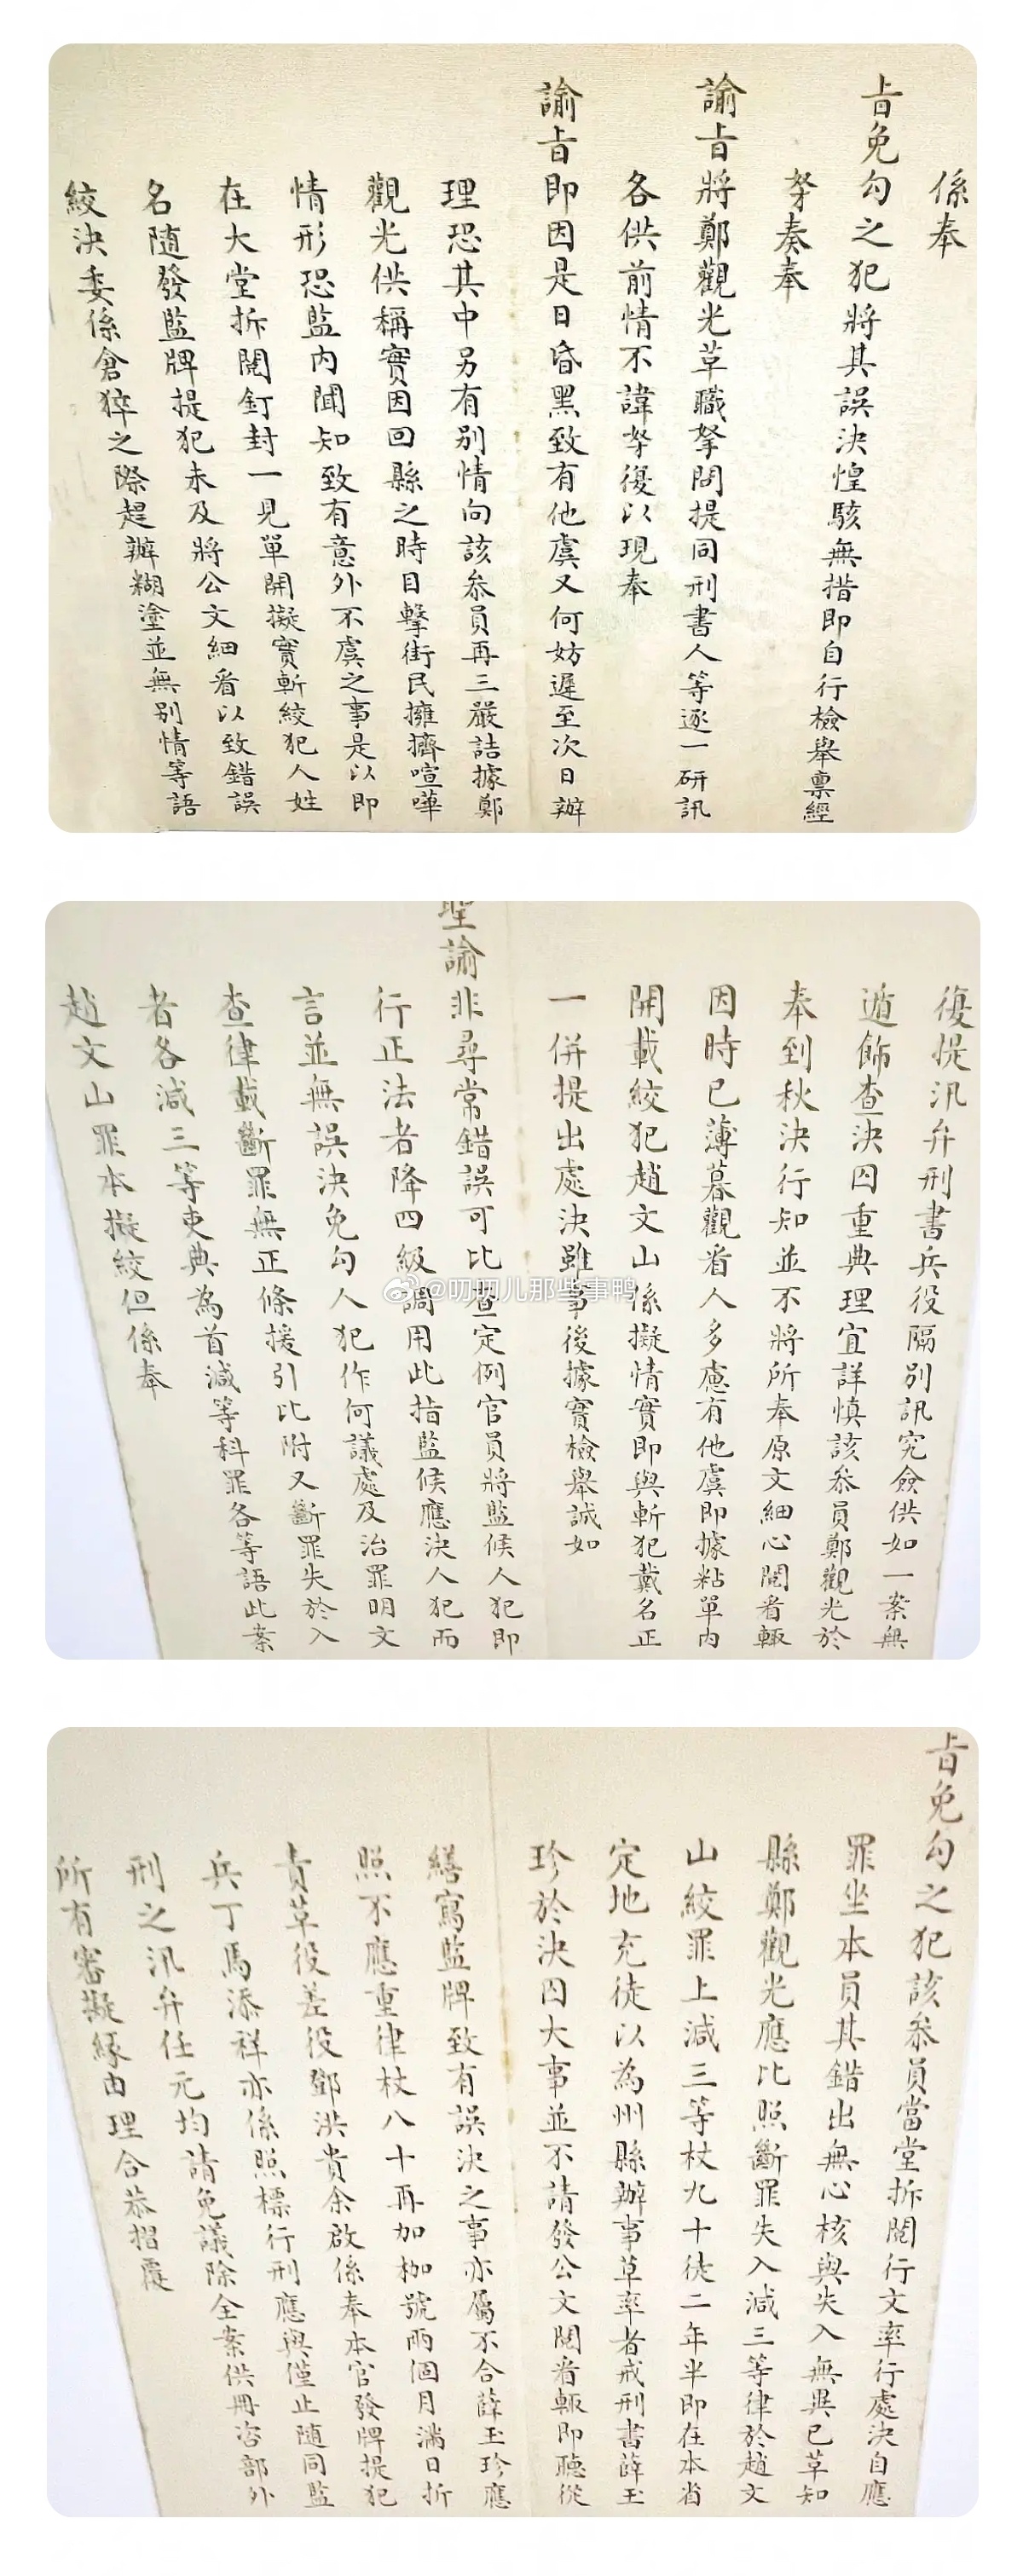 係奉
旨免勾之犯將其誤決惶駭無措即自行檢舉稟經
奏奉
諭旨將鄭觀光革職拏問提同刑書人等逐一研訊
各供前情不諱拏復以現奉
諭旨即因是日昏黑致有他虞又何妨遲至次日辦
理恐其中另有別情向該叅員再三嚴詰據鄭
觀光供稱實因回縣之時目擊街民擁擠喧嘩
情形恐監內聞知致有意外不虞之事是以即
在大堂拆閱釘封一見單開擬實斬絞犯人姓
名隨發監牌提犯未及將公文細看以致錯誤
絞決委係倉猝之際趕辦糊塗並無別情等語
復提汛弁刑書兵役隔別訊究僉供如一案無
遁飾查決囚重典理宜詳慎該叅員鄭觀光於
奉到秋決行知並不將所奉原文細心閱看輒
因時已薄暮觀看人多慮有他虞即據粘單內
開載絞犯趙文山係擬情實即與斬犯戴名正
一併提出處決雖事後據實檢舉誠如
聖諭非尋常錯誤可比查定例官員將監候人犯即
行正法者降四級調用此指監候應決人犯而
言並無誤決免勾人犯作何議處及治罪明文
查律載斷罪無正條援引比附又斷罪失於入
者各減三等吏典為首減等科罪各等語此案
趙文山罪本擬絞但係奉
旨免勾之犯該叅員當堂拆閱行文率行處決自應
罪坐本員其錯出無心核與失入無異已革知
縣鄭觀光應比照斷罪失入減三等律於趙文
山絞罪上減三等杖九十徒二年半即在本省
定地充徒以為州縣辦事草率者戒刑書薛玉
珍於決囚大事並不請發公文閱看輒即聽從
繕寫監牌致有誤決之事亦屬不合薛玉珍應
照不應重律杖八十再加枷號兩個月滿日折
責革役差役鄧洪貴余啟係奉本官發牌提犯
兵丁馬添祥亦係照標行刑應與僅止隨同監
刑之汛弁任元均請免議除全案供冊咨部外
所有審擬緣由理合恭摺覆
@叨叨儿那些事鸭